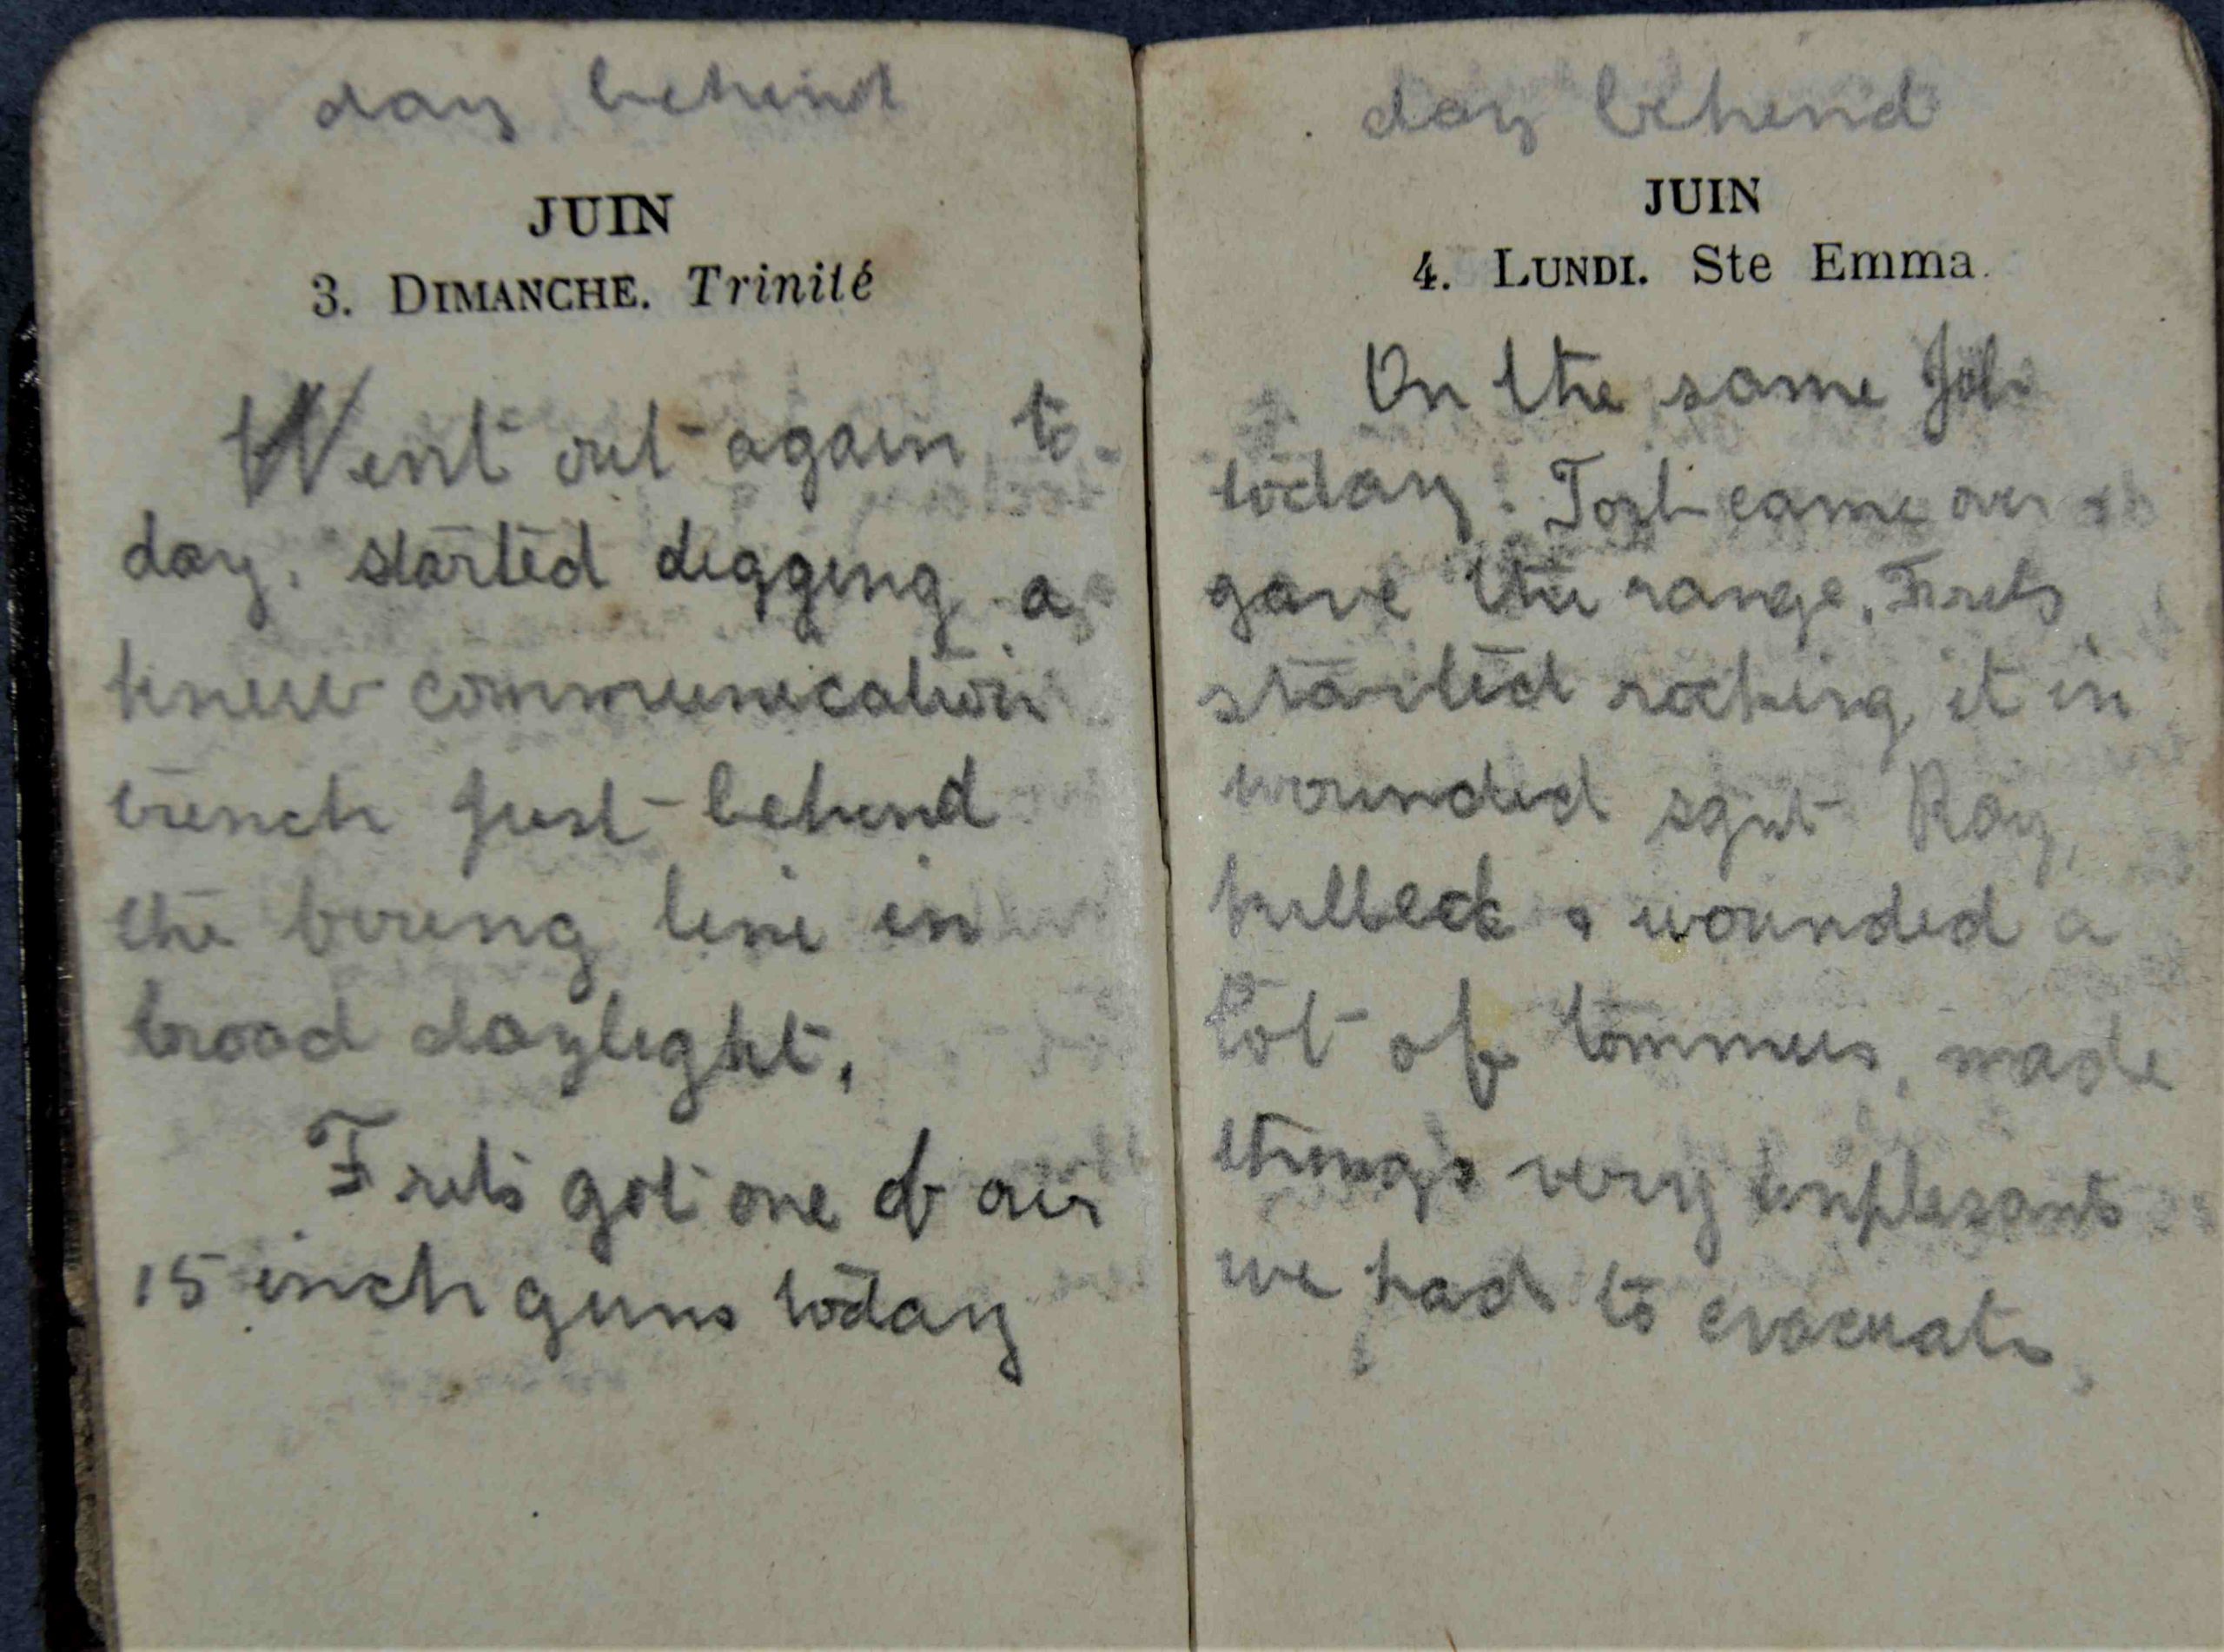 day behind
JUIN
3. DIMANCHE. Trinité
Went out again to-
day. started digging a
knew communication
trench just behind
the firing line in
broad daylight.
Frits got one of our
15 inch guns today
day behind
JUIN
4. LUNDI. Ste Emma.
On the same Job
today. came over
gave the range. Frits
started rocking it in
wounded sgnt Ray,
killed & wounded a
lot of tommies, made
things very unplesant
we had to evacuate.